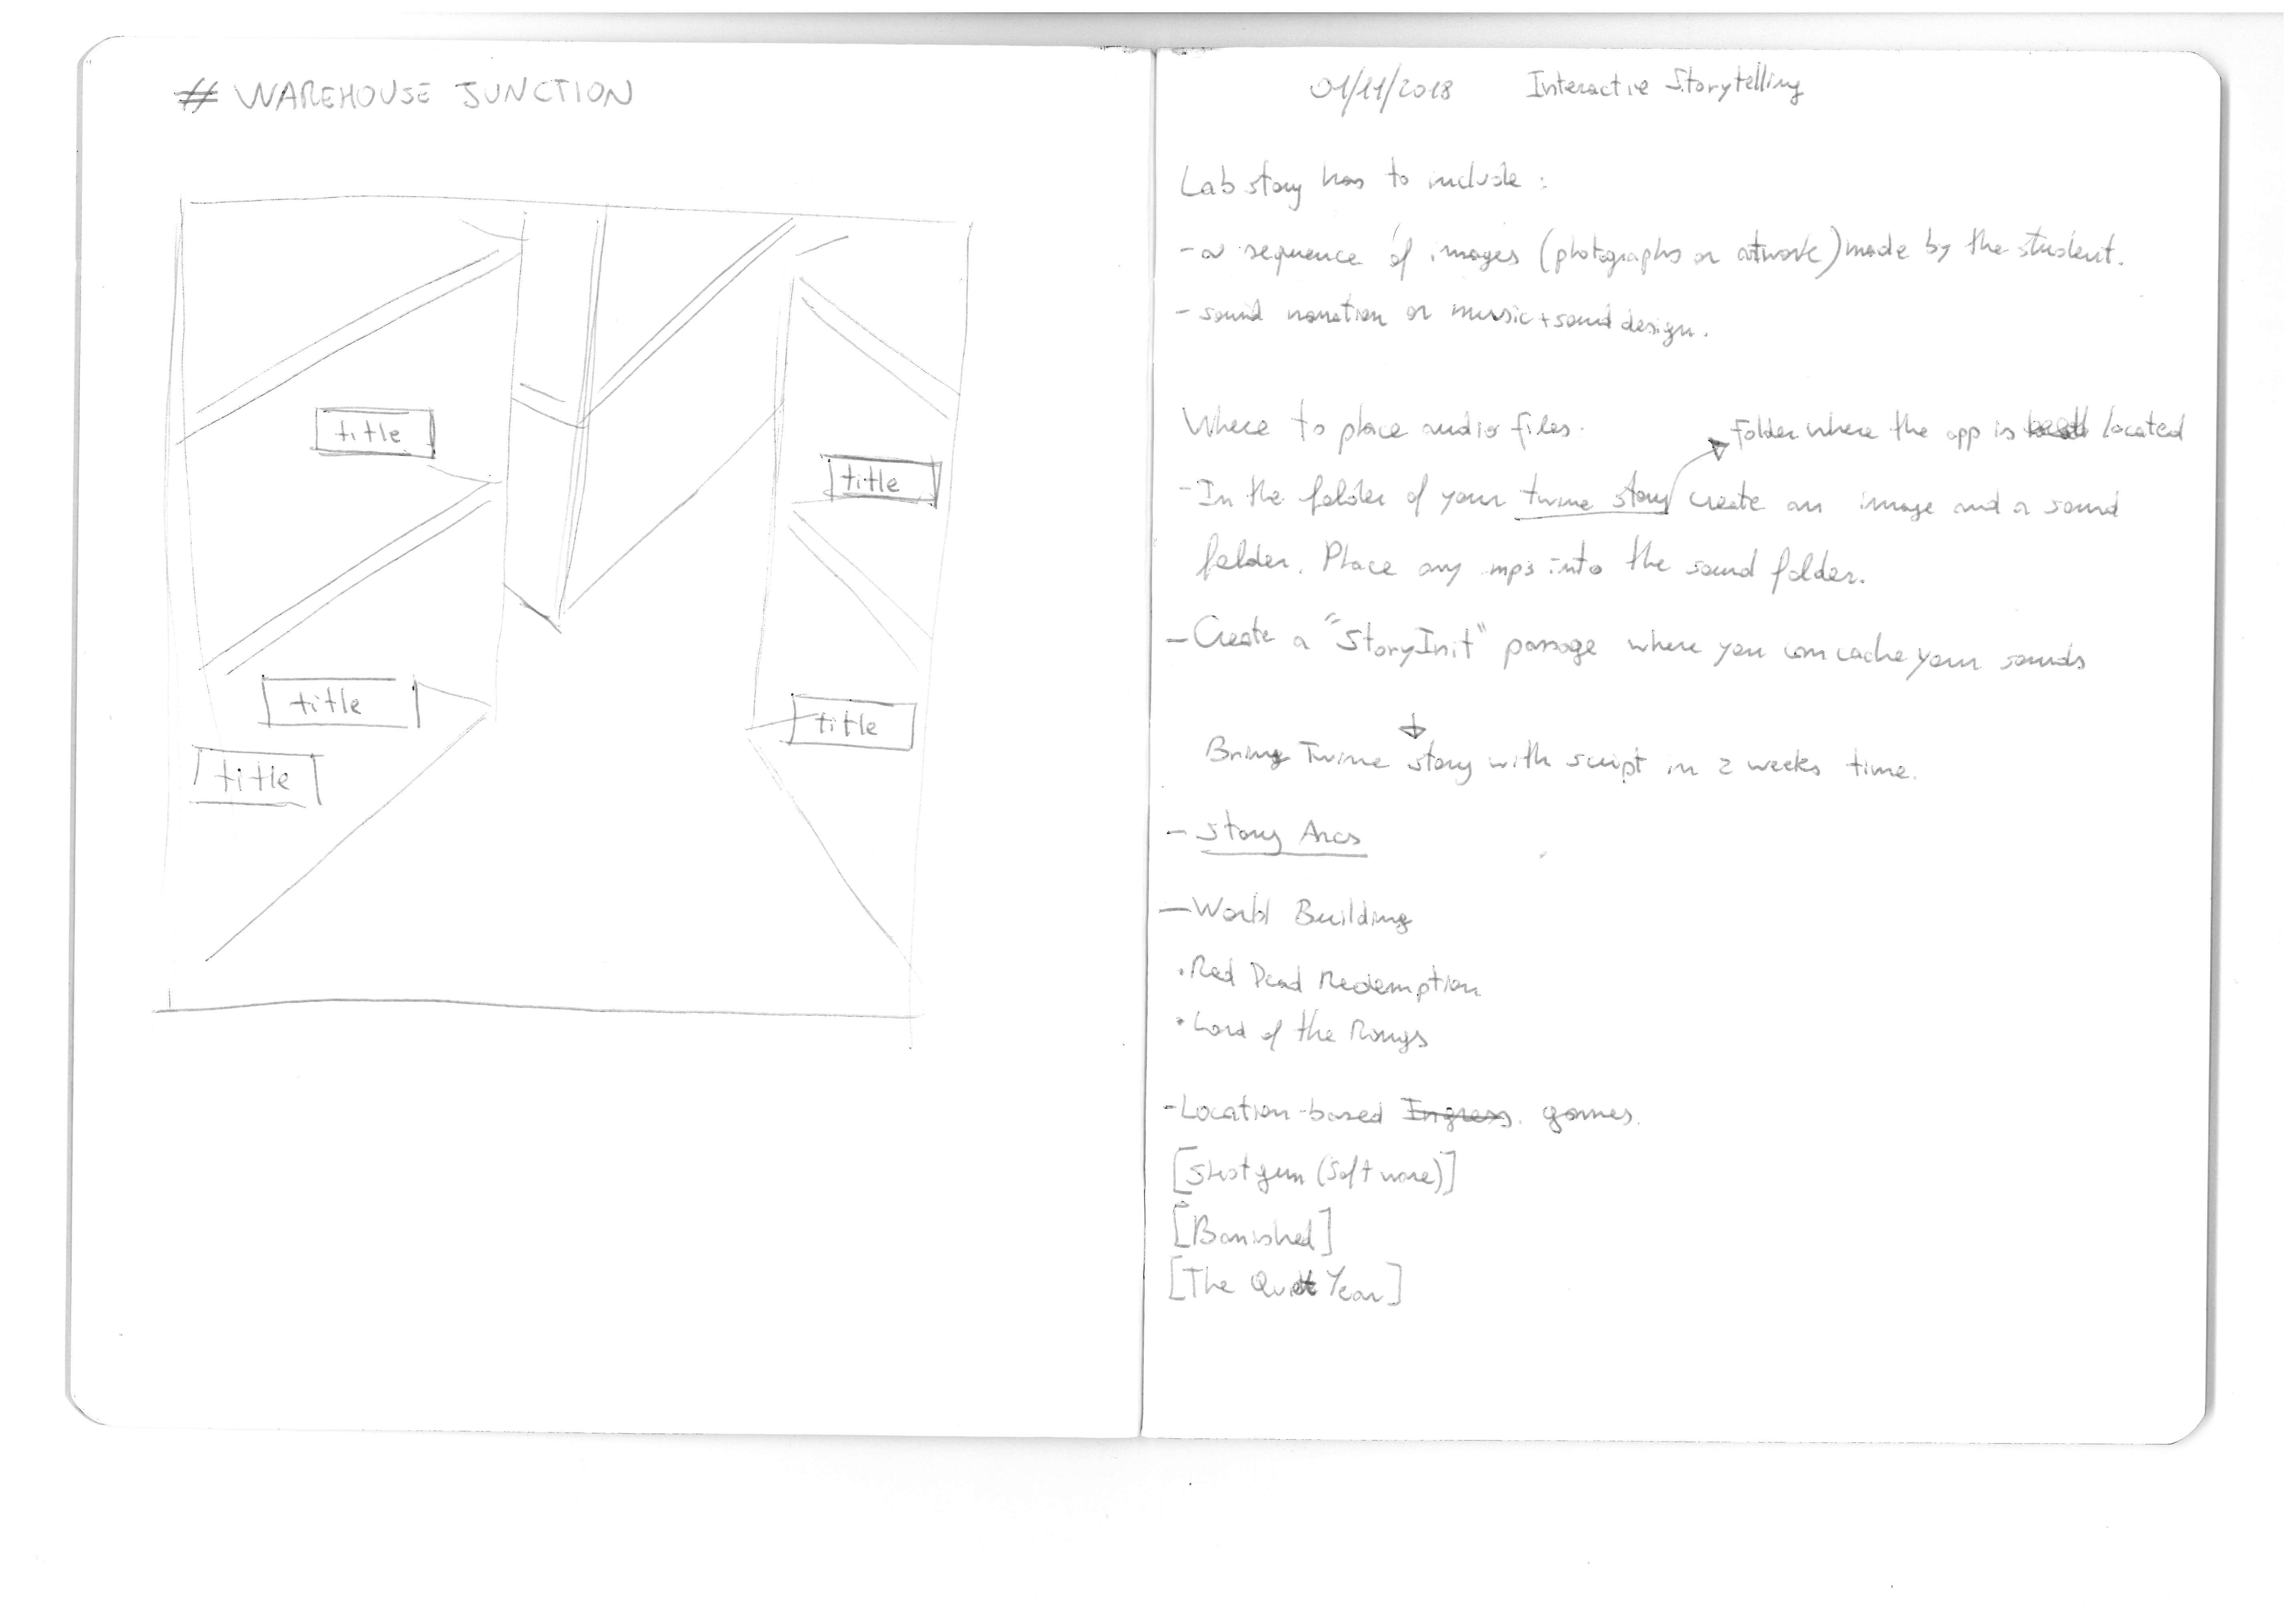 # WAREHOUSE JUNCTION
title
title
title
title
title
01/11/2018 Interactive Storytelling
Lab story has to include :
- a sequence of images (photographs or artwork) made by the student.
- sound narration or music + sound design.
Where to place audio files.
Folder where the app is located
- In the folder of your twine story create an image and a sound
folder. Place any mp3 into the sound folder.
- Create a "StoryInit" passage where you can cache your sounds
Bring Twine story with script in 2 weeks time.
- Story Arcs
- World Building
• Red Dead Redemption
• Lord of the Rings
- Location-based Ingress. games.
[Shotgun (Software)]
[Banished]
[The Quiet Year]